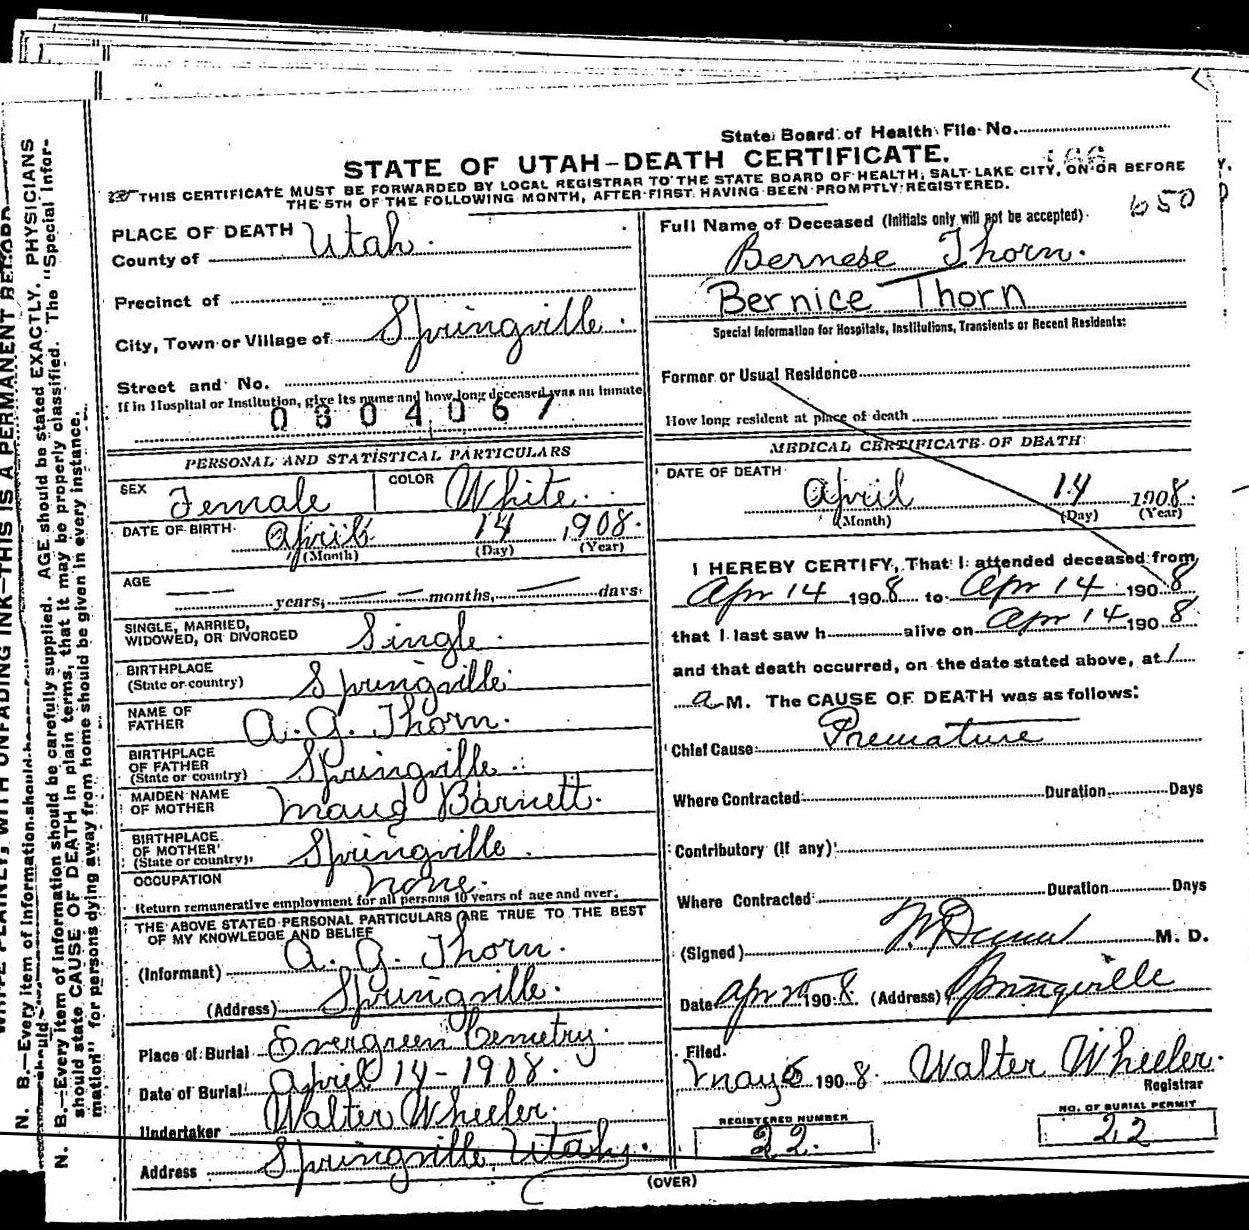 State Board of Health File No.
STATE OF UTAH—DEATH CERTIFICATE.
166
THIS CERTIFICATE MUST BE FORWARDED BY LOCAL REGISTRAR TO THE STATE BOARD OF HEALTH, SALT LAKE CITY, ON OR BEFORE
THE 5TH OF THE FOLLOWING MONTH, AFTER FIRST HAVING BEEN PROMPTLY REGISTERED.
650
PLACE OF DEATH
County of Utah.
Precinct of
City, Town or Village of Springville.
Street and No.
If in Hospital or Institution, give its name and how long deceased was an inmate
0804067
PERSONAL AND STATISTICAL PARTICULARS
SEX Female COLOR White.
DATE OF BIRTH April 14 1908.
(Month) (Day) (Year)
AGE
— years, — months, — days.
SINGLE, MARRIED,
WIDOWED, OR DIVORCED Single.
BIRTHPLACE
(State or country) Springville.
NAME OF
FATHER A. G. Thorn.
BIRTHPLACE
OF FATHER
(State or country) Springville.
MAIDEN NAME
OF MOTHER Maud Barnett.
BIRTHPLACE
OF MOTHER
(State or country) Springville.
OCCUPATION none.
Return remunerative employment for all persons 10 years of age and over.
THE ABOVE STATED PERSONAL PARTICULARS ARE TRUE TO THE BEST
OF MY KNOWLEDGE AND BELIEF
(Informant) A. G. Thorn.
(Address) Springville.
Place of Burial Evergreen Cemetry.
Date of Burial April 14-1908.
Undertaker Walter Wheeler.
Address Springville, Utah.
Full Name of Deceased (Initials only will not be accepted)
Bernese Thorn.
Bernice Thorn
Special Information for Hospitals, Institutions, Transients or Recent Residents:
Former or Usual Residence
How long resident at place of death
MEDICAL CERTIFICATE OF DEATH
DATE OF DEATH
April 14 1908.
(Month) (Day) (Year)
I HEREBY CERTIFY, That I attended deceased from
Apr 14 1908 to Apr 14 1908
that I last saw h alive on Apr 14 1908
and that death occurred, on the date stated above, at 1
a M. The CAUSE OF DEATH was as follows:
Chief Cause: Premature
Where Contracted Duration Days
Contributory (if any)
Where Contracted Duration Days
(Signed) M. D.
Date Apr 1908 (Address) Springville
Filed.
May 5 1908. Walter Wheeler.
Registrar
REGISTERED NUMBER
22.
NO. OF BURIAL PERMIT
22
(OVER)
N. B.—Every item of information should be carefully supplied. AGE should be stated EXACTLY. PHYSICIANS
should state CAUSE OF DEATH in plain terms, that it may be properly classified. The "Special Infor-
mation" for persons dying away from home should be given in every instance.